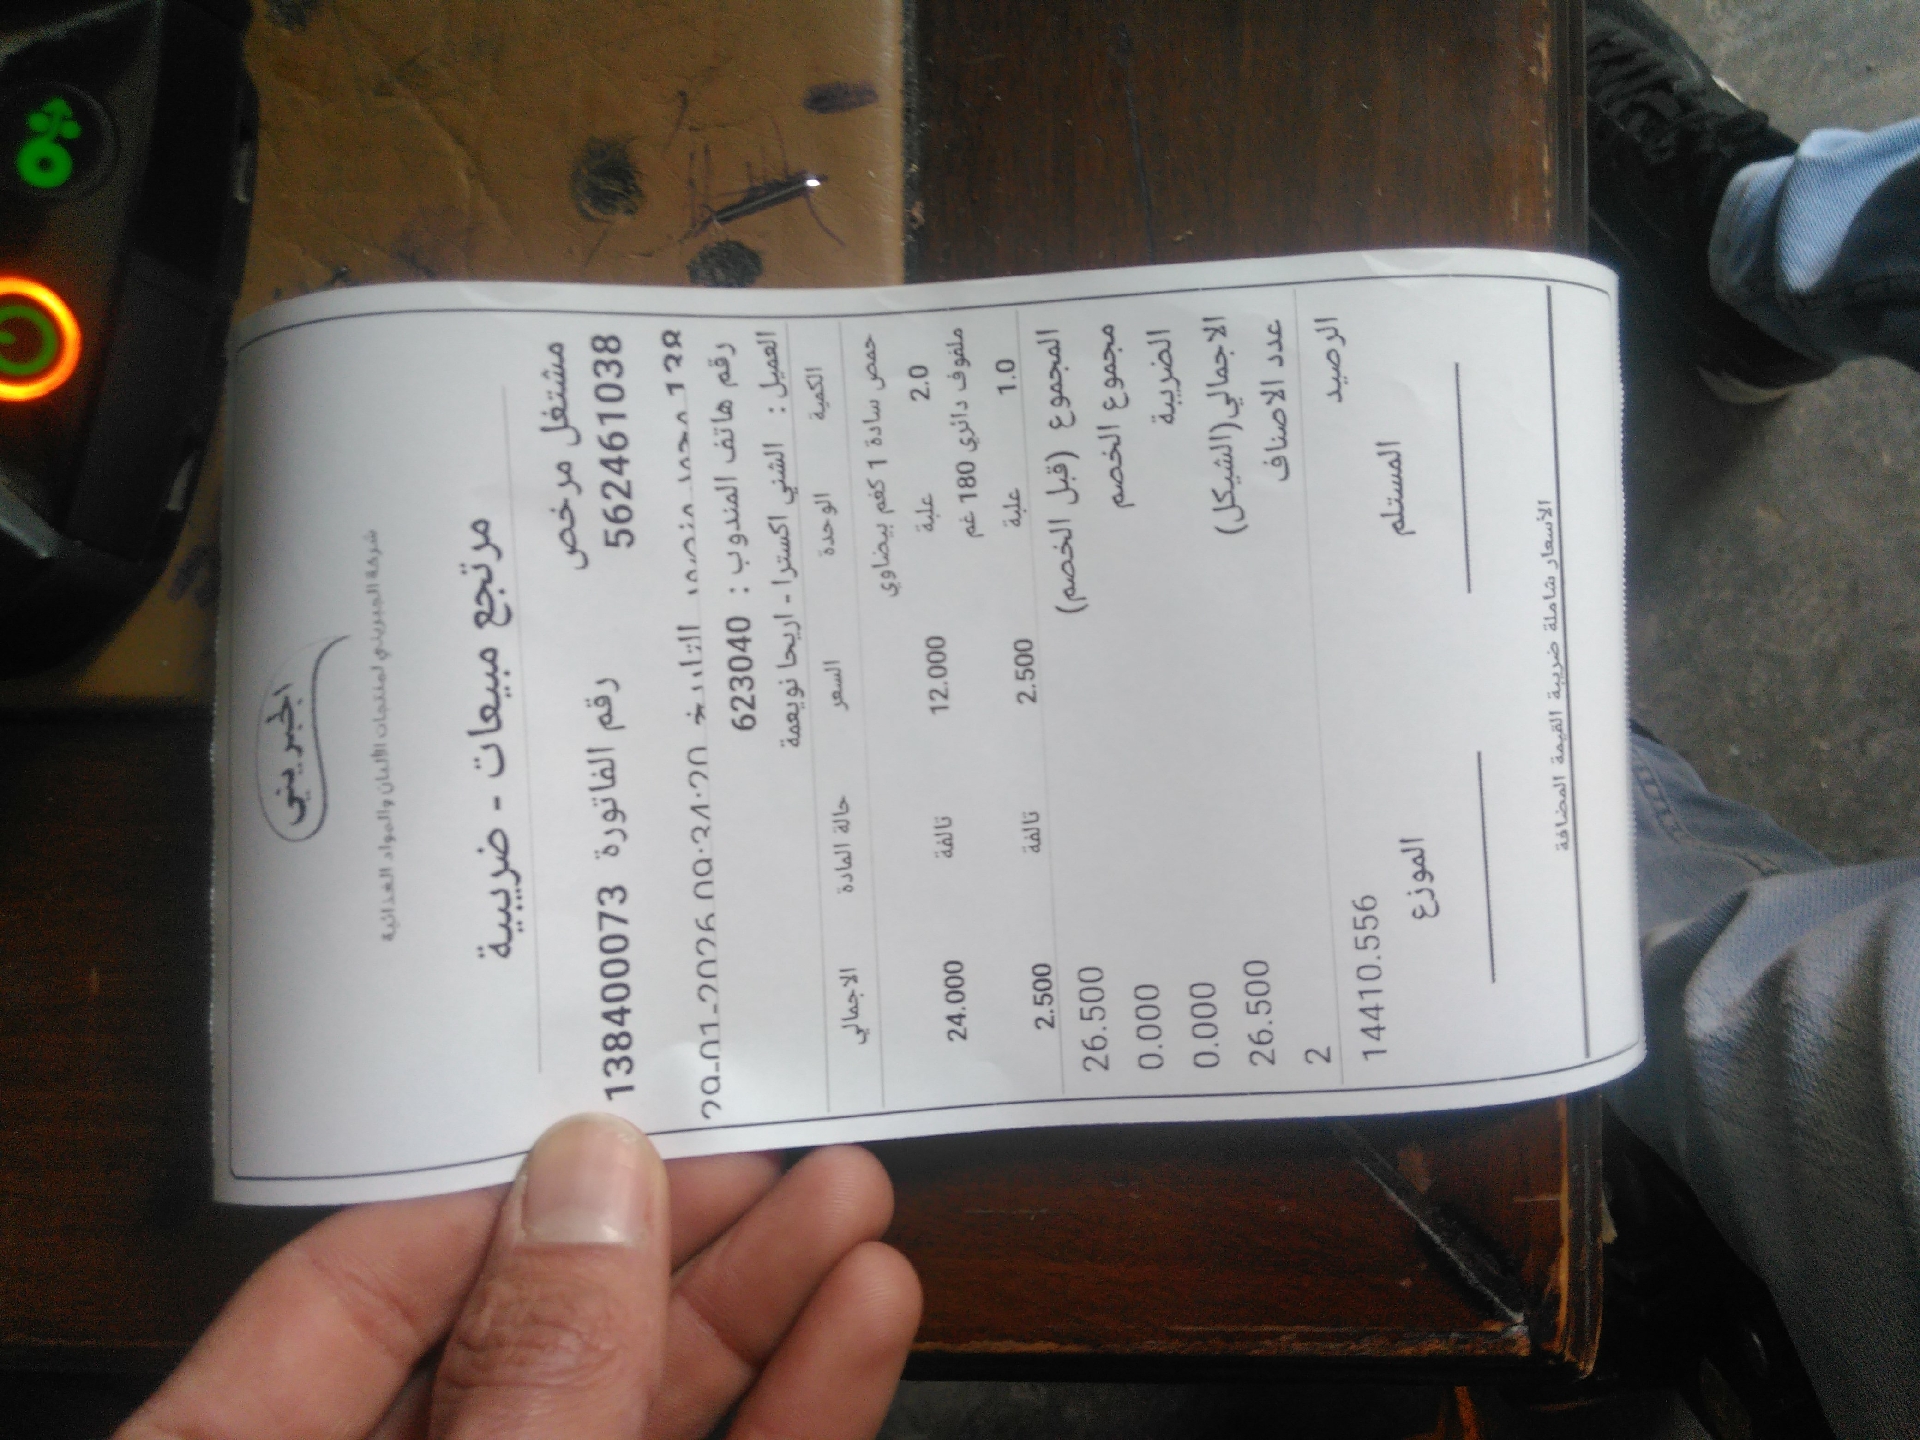 الجبريني
شركة الجبريني لمنتجات الألبان والمواد الغذائية
مرتجع مبيعات - ضريبية
مشتغل مرخص
562461038 رقم الفاتورة 138400073
138 محمد منصور التاريخ
رقم هاتف المندوب : 623040
العميل : الشني اكسترا - اريحا نويعمة
الكمية الوحدة السعر حالة المادة الاجمالي
حمص سادة 1 كغم بيضاوي
2.0 علبة 12.000 تالفة 24.000
ملفوف دائري 180 غم
1.0 علبة 2.500 تالفة 2.500
المجموع (قبل الخصم) 26.500
مجموع الخصم 0.000
الضريبة 0.000
الاجمالي(الشيكل) 26.500
عدد الاصناف 2
الرصيد 14410.556
المستلم الموزع
الأسعار شاملة ضريبة القيمة المضافة